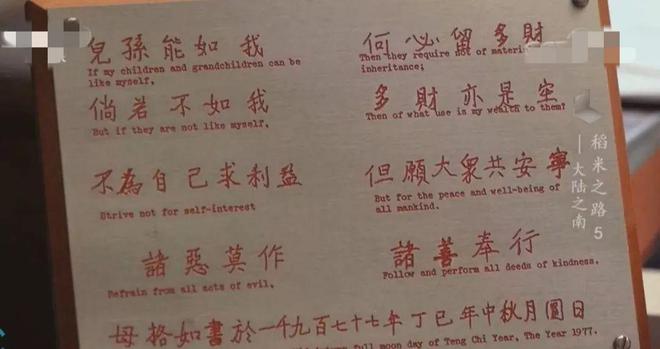 兒孫能如我 何必留多財
If my children and grandchildren can be like myself, Then they require not of material inheritance;
倘若不如我 多財亦是空
But if they are not like myself, Then of what use is my wealth to them?
不為自己求利益 但願大眾共安寧
Strive not for self-interest But for the peace and well-being of all mankind.
諸惡莫作 諸善奉行
Refrain from all acts of evil, Follow and perform all deeds of kindness.
母格如書於一千九百七十七年丁巳年中秋月圓日
full moon day of Teng Chi Year, The Year 1977.
稻米之路5
——大陆之南